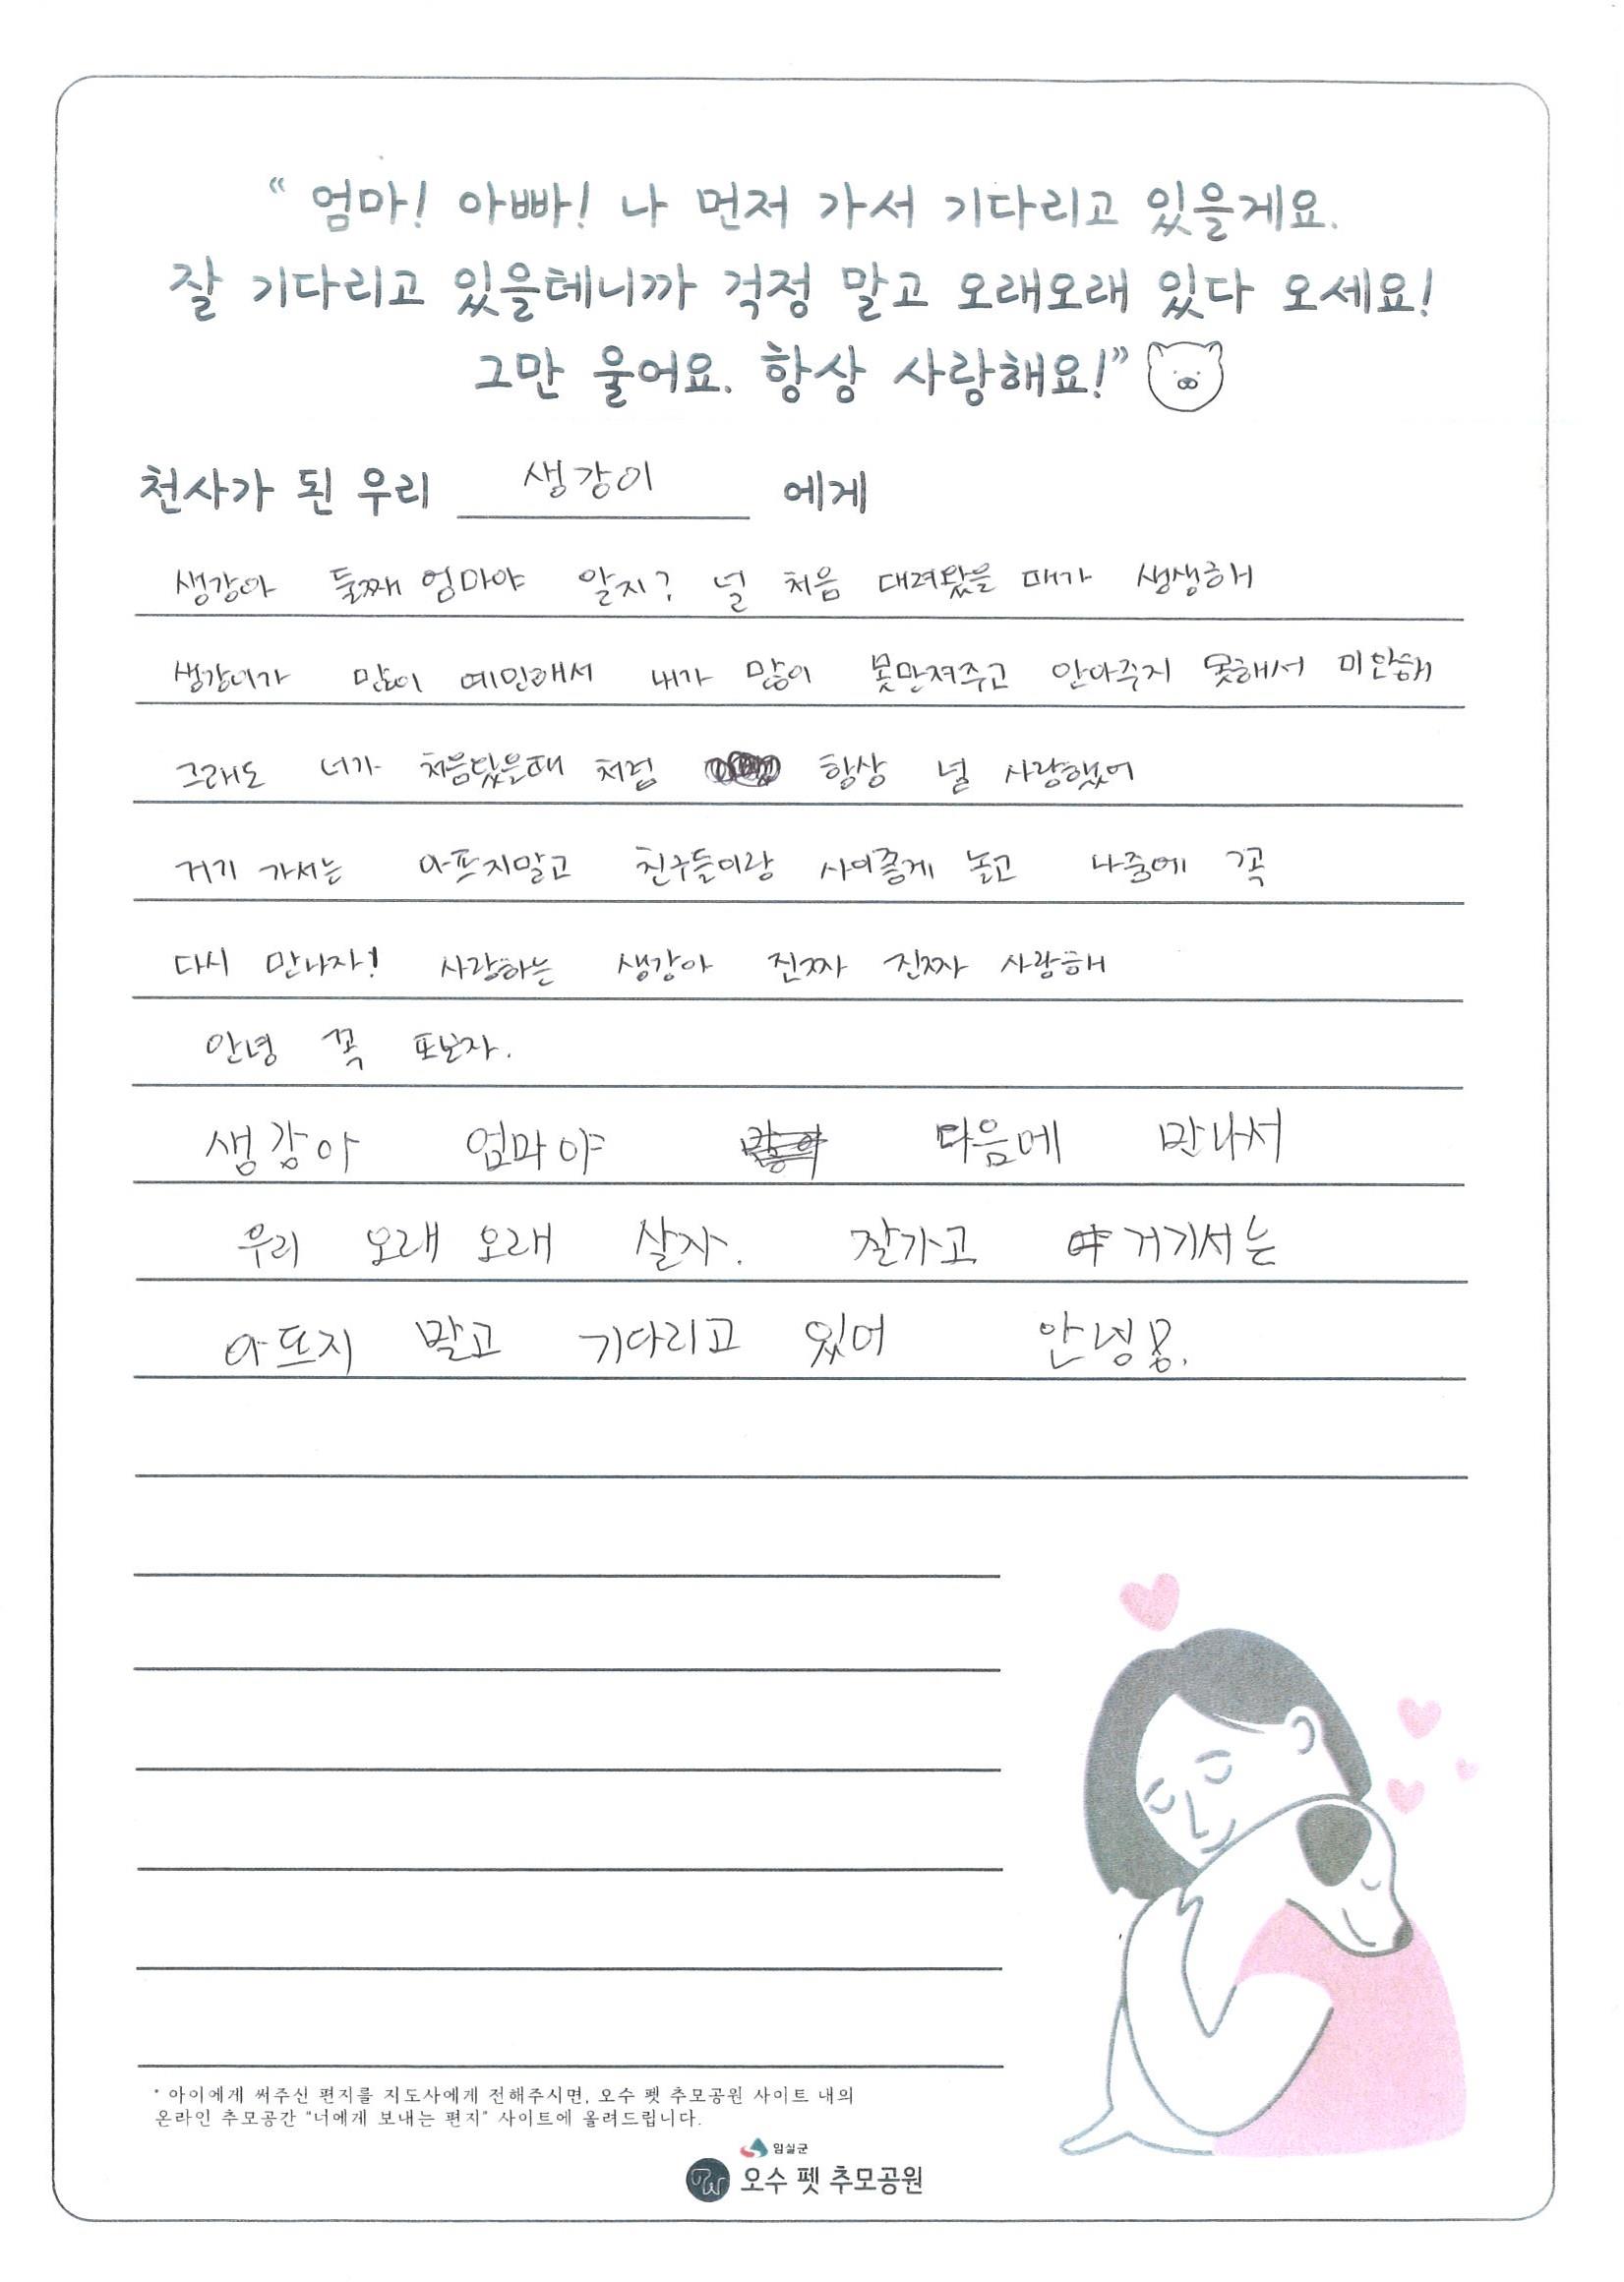 “ 엄마! 아빠! 나 먼저 가서 기다리고 있을게요.
잘 기다리고 있을테니까 걱정 말고 오래오래 있다 오세요!
그만 울어요. 항상 사랑해요!”
천사가 된 우리 생강이 에게
생강아 둘째 엄마야 알지? 널 처음 대려왔을 때가 생생해
생강이가 많이 예민해서 내가 많이 못만져주고 안아주지 못해서 미안해
그래도 너가 처음왔을때 처럼 항상 널 사랑했어
거기 가서는 아프지말고 친구들이랑 사이좋게 놀고 나중에 꼭
다시 만나자! 사랑하는 생강아 진짜 진짜 사랑해
안녕 꼭 또보자.
생강아 엄마야 다음에 만나서
우리 오래 오래 살자. 잘가고 거기서는
아프지 말고 기다리고 있어 안녕몽.
* 아이에게 써주신 편지를 지도사에게 전해주시면, 오수 펫 추모공원 사이트 내의
온라인 추모공간 “너에게 보내는 편지” 사이트에 올려드립니다.
임실군
오수 펫 추모공원